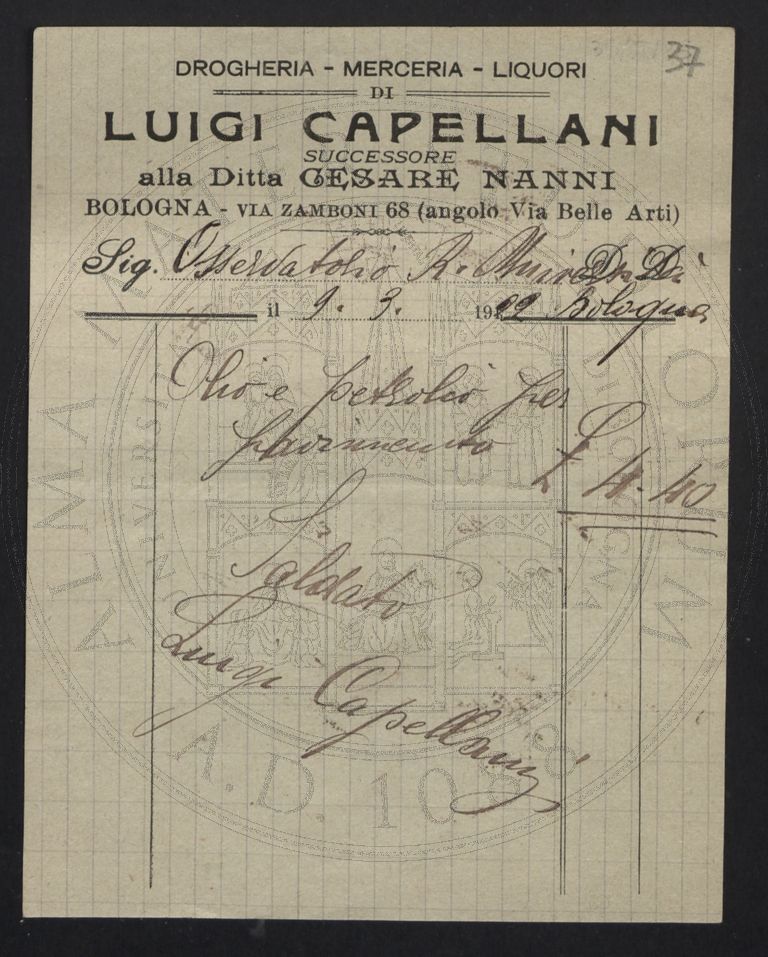 37
DROGHERIA - MERCERIA - LIQUORI
DI
LUIGI CAPELLANI
SUCCESSORE
alla Ditta CESARE NANNI
BOLOGNA - VIA ZAMBONI 68 (angolo Via Belle Arti)
Sig. Osservatorio R. Di
il 9. 3. 1922 Bologna
Olio e petrolio per
pavimento £ 4.40
Saldato
Luigi Capellani
ALMA MATER
A.D. 1088